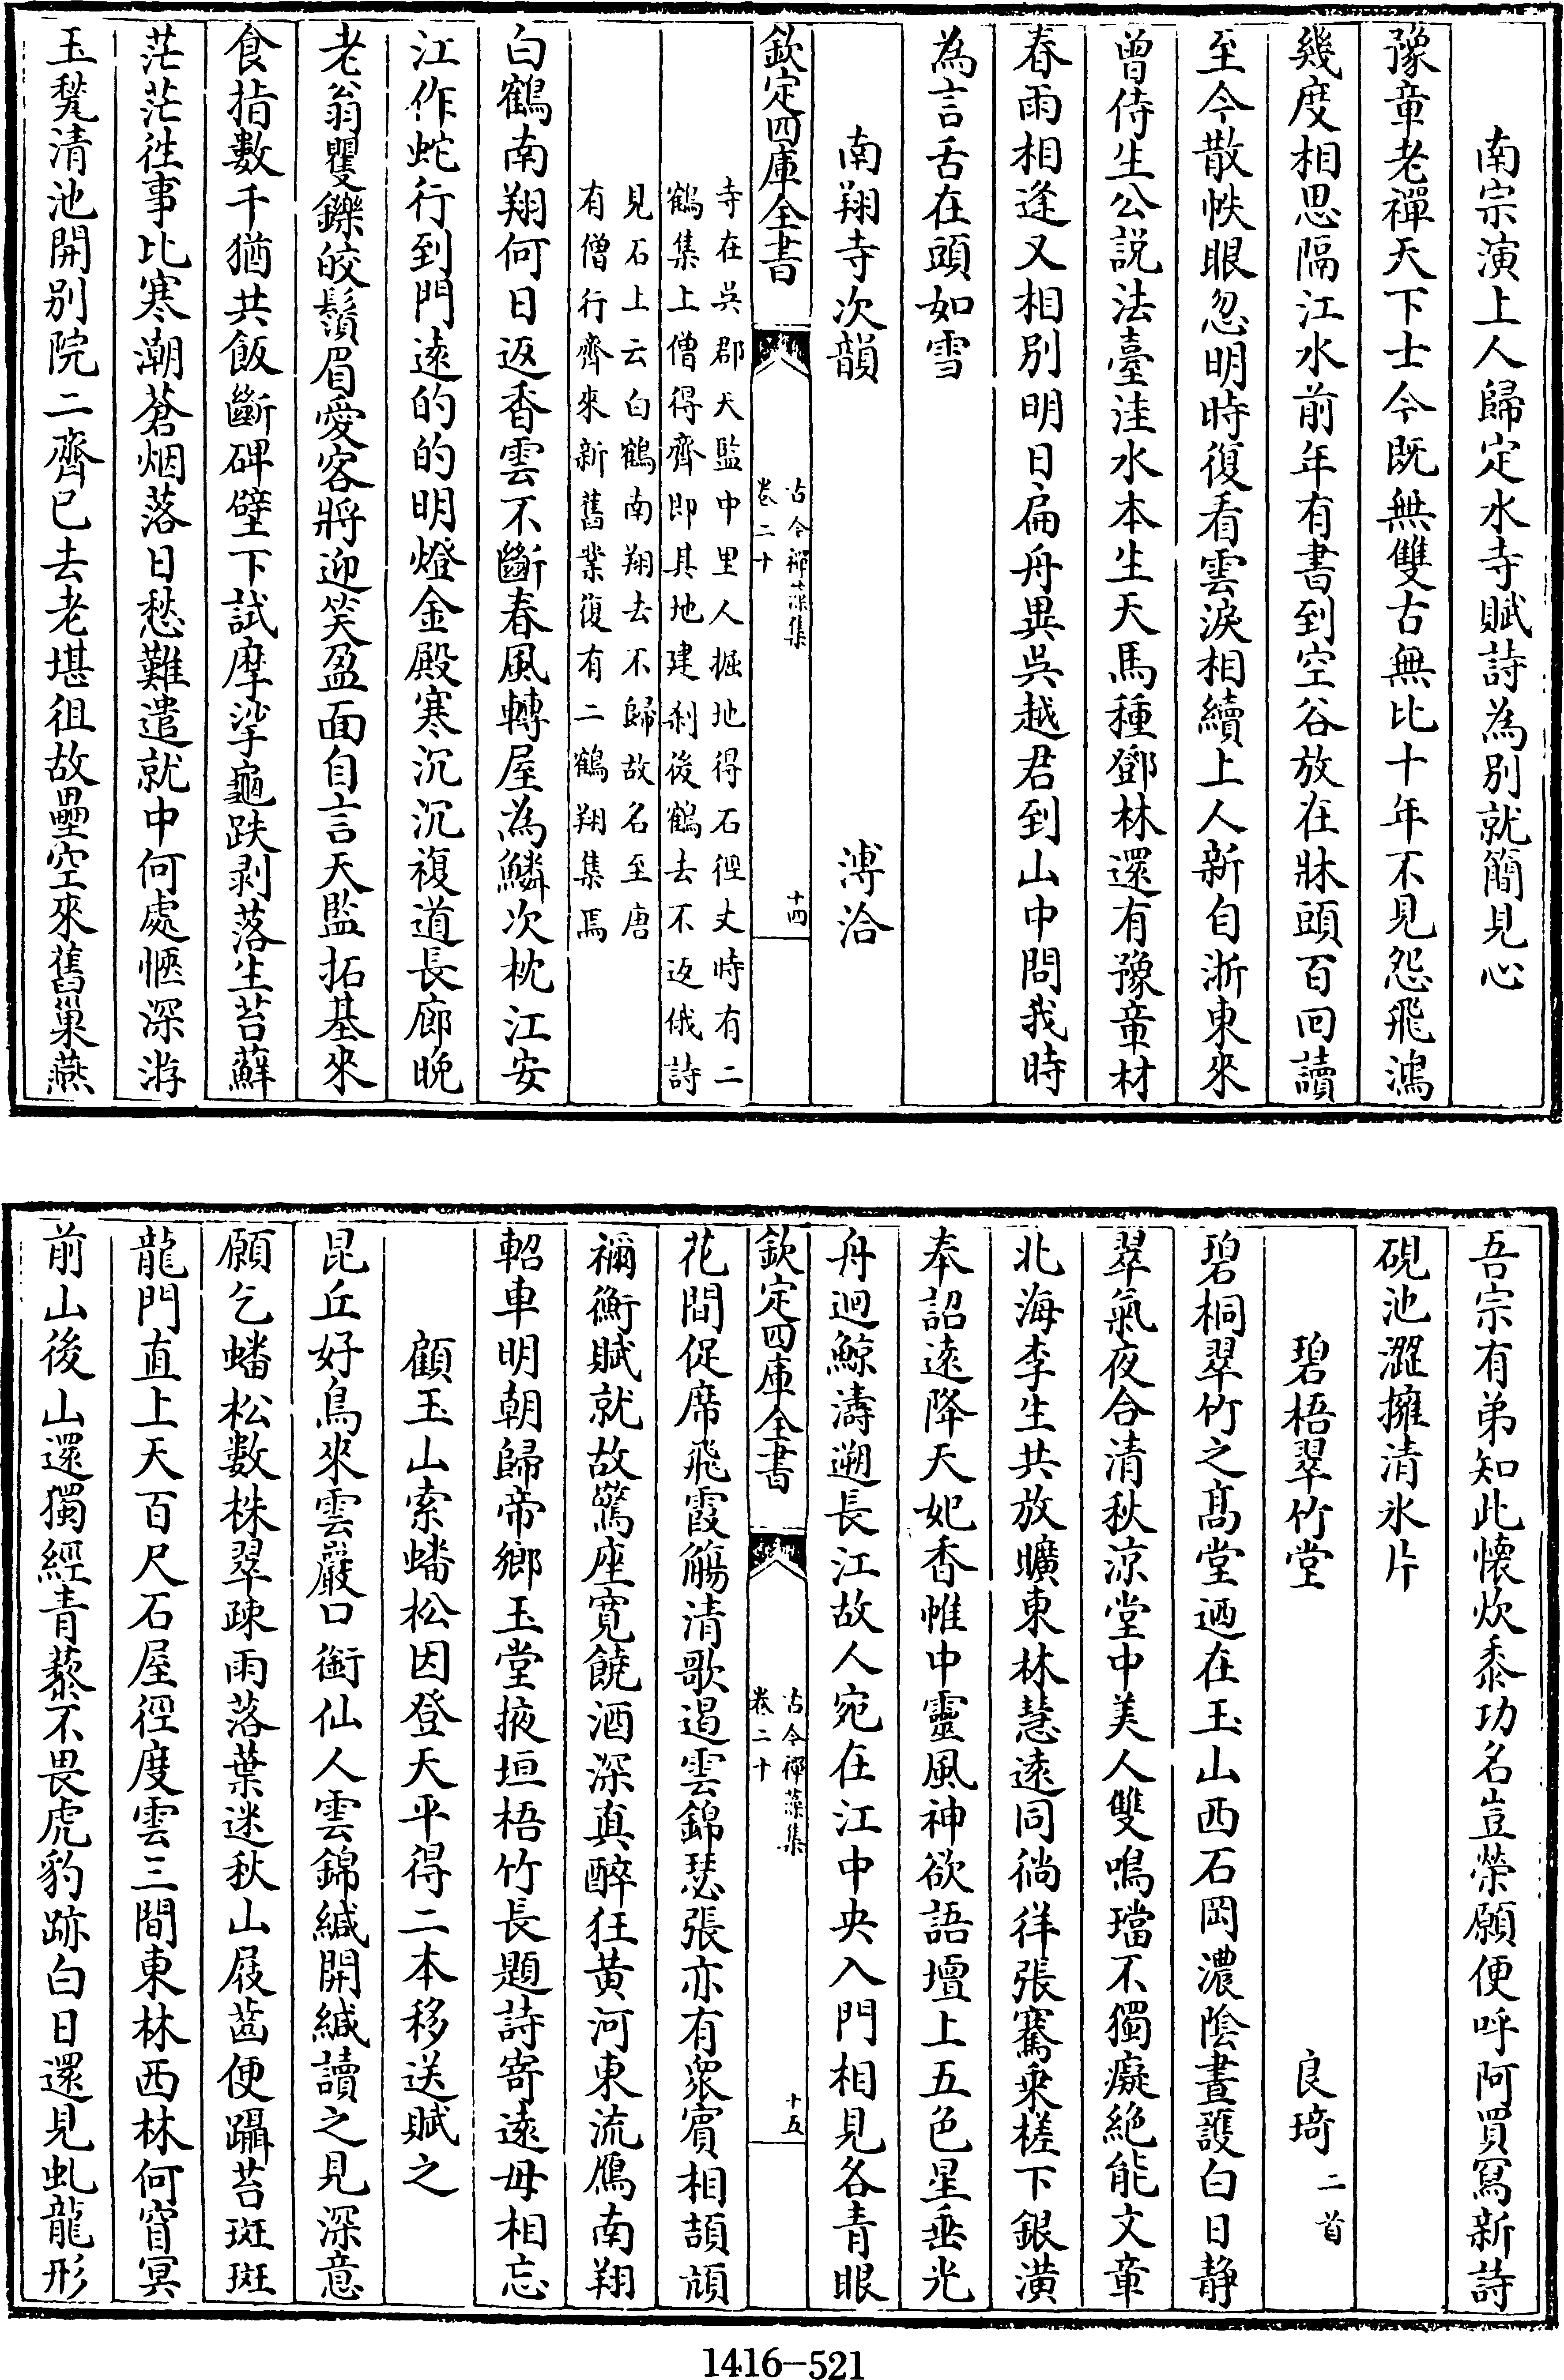 南宗演上人歸定水寺賦詩為别就簡見心
豫章老禪天下士今既無雙古無比十年不見怨飛鴻
幾度相思隔江水前年有書到空谷放在牀頭百回讀
至今散帙眼忽明時復看雲淚相續上人新自浙東來
曾侍生公説法臺洼水本生天馬種鄧林還有豫章材
春雨相逢又相别明日扁舟異呉越君到山中問我時
為言舌在頭如雪
南翔寺次韻 溥洽
欽定四庫全書 古今禪藻集 卷二十 十四
寺在呉郡天監中里人掘地得石徑丈時有二
鶴集上僧得齊即其地建刹後鶴去不返俄詩
見石上云白鶴南翔去不歸故名至唐
有僧行齊來新舊業復有二鶴翔集焉
白鶴南翔何日返香雲不斷春風轉屋為鱗次枕江安
江作蛇行到門遠的的明燈金殿寒沉沉複道長廊晚
老翁矍鑠皎鬚眉愛客將迎笑盈面自言天監拓基來
食指數千猶共飯斷碑壁下試摩挲龜趺剥落生苔蘚
茫茫徃事比寒潮蒼烟落日愁難遣就中何處愜深游
玉甃清池開别院二齊已去老堪徂故壘空來舊巢燕
吾宗有弟知此懐炊黍功名豈榮願便呼阿買寫新詩
硯池澀擁清氷片
碧梧翠竹堂 良琦 二首
碧桐翠竹之髙堂迺在玉山西石岡濃隂晝護白日静
翠氣夜合清秋涼堂中美人雙鳴璫不獨癡絶能文章
北海李生共放曠東林慧遠同徜徉張騫乗槎下銀潢
奉詔遠降天妃香帷中靈風神欲語壇上五色星垂光
舟迴鯨濤遡長江故人宛在江中央入門相見各青眼
欽定四庫全書 古今禪藻集 卷二十 十五
花間促席飛霞觴清歌遏雲錦瑟張亦有衆賓相頡頏
禰衡賦就故驚座寛饒酒深真醉狂黄河東流鴈南翔
軺車明朝歸帝鄉玉堂掖垣梧竹長題詩寄遠毋相忘
顧玉山索蟠松因登天平得二本移送賦之
昆丘好鳥來雲巖口銜仙人雲錦緘開緘讀之見深意
願乞蟠松數株翠疎雨落葉迷秋山屐齒便躡苔斑斑
龍門直上天百尺石屋徑度雲三間東林西林何窅冥
前山後山還獨經青藜不畏虎豹跡白日還見虬龍形
1416-521